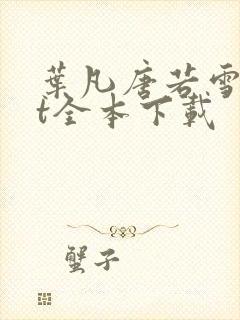 葉凡唐若雪
t全本下載
蟹子